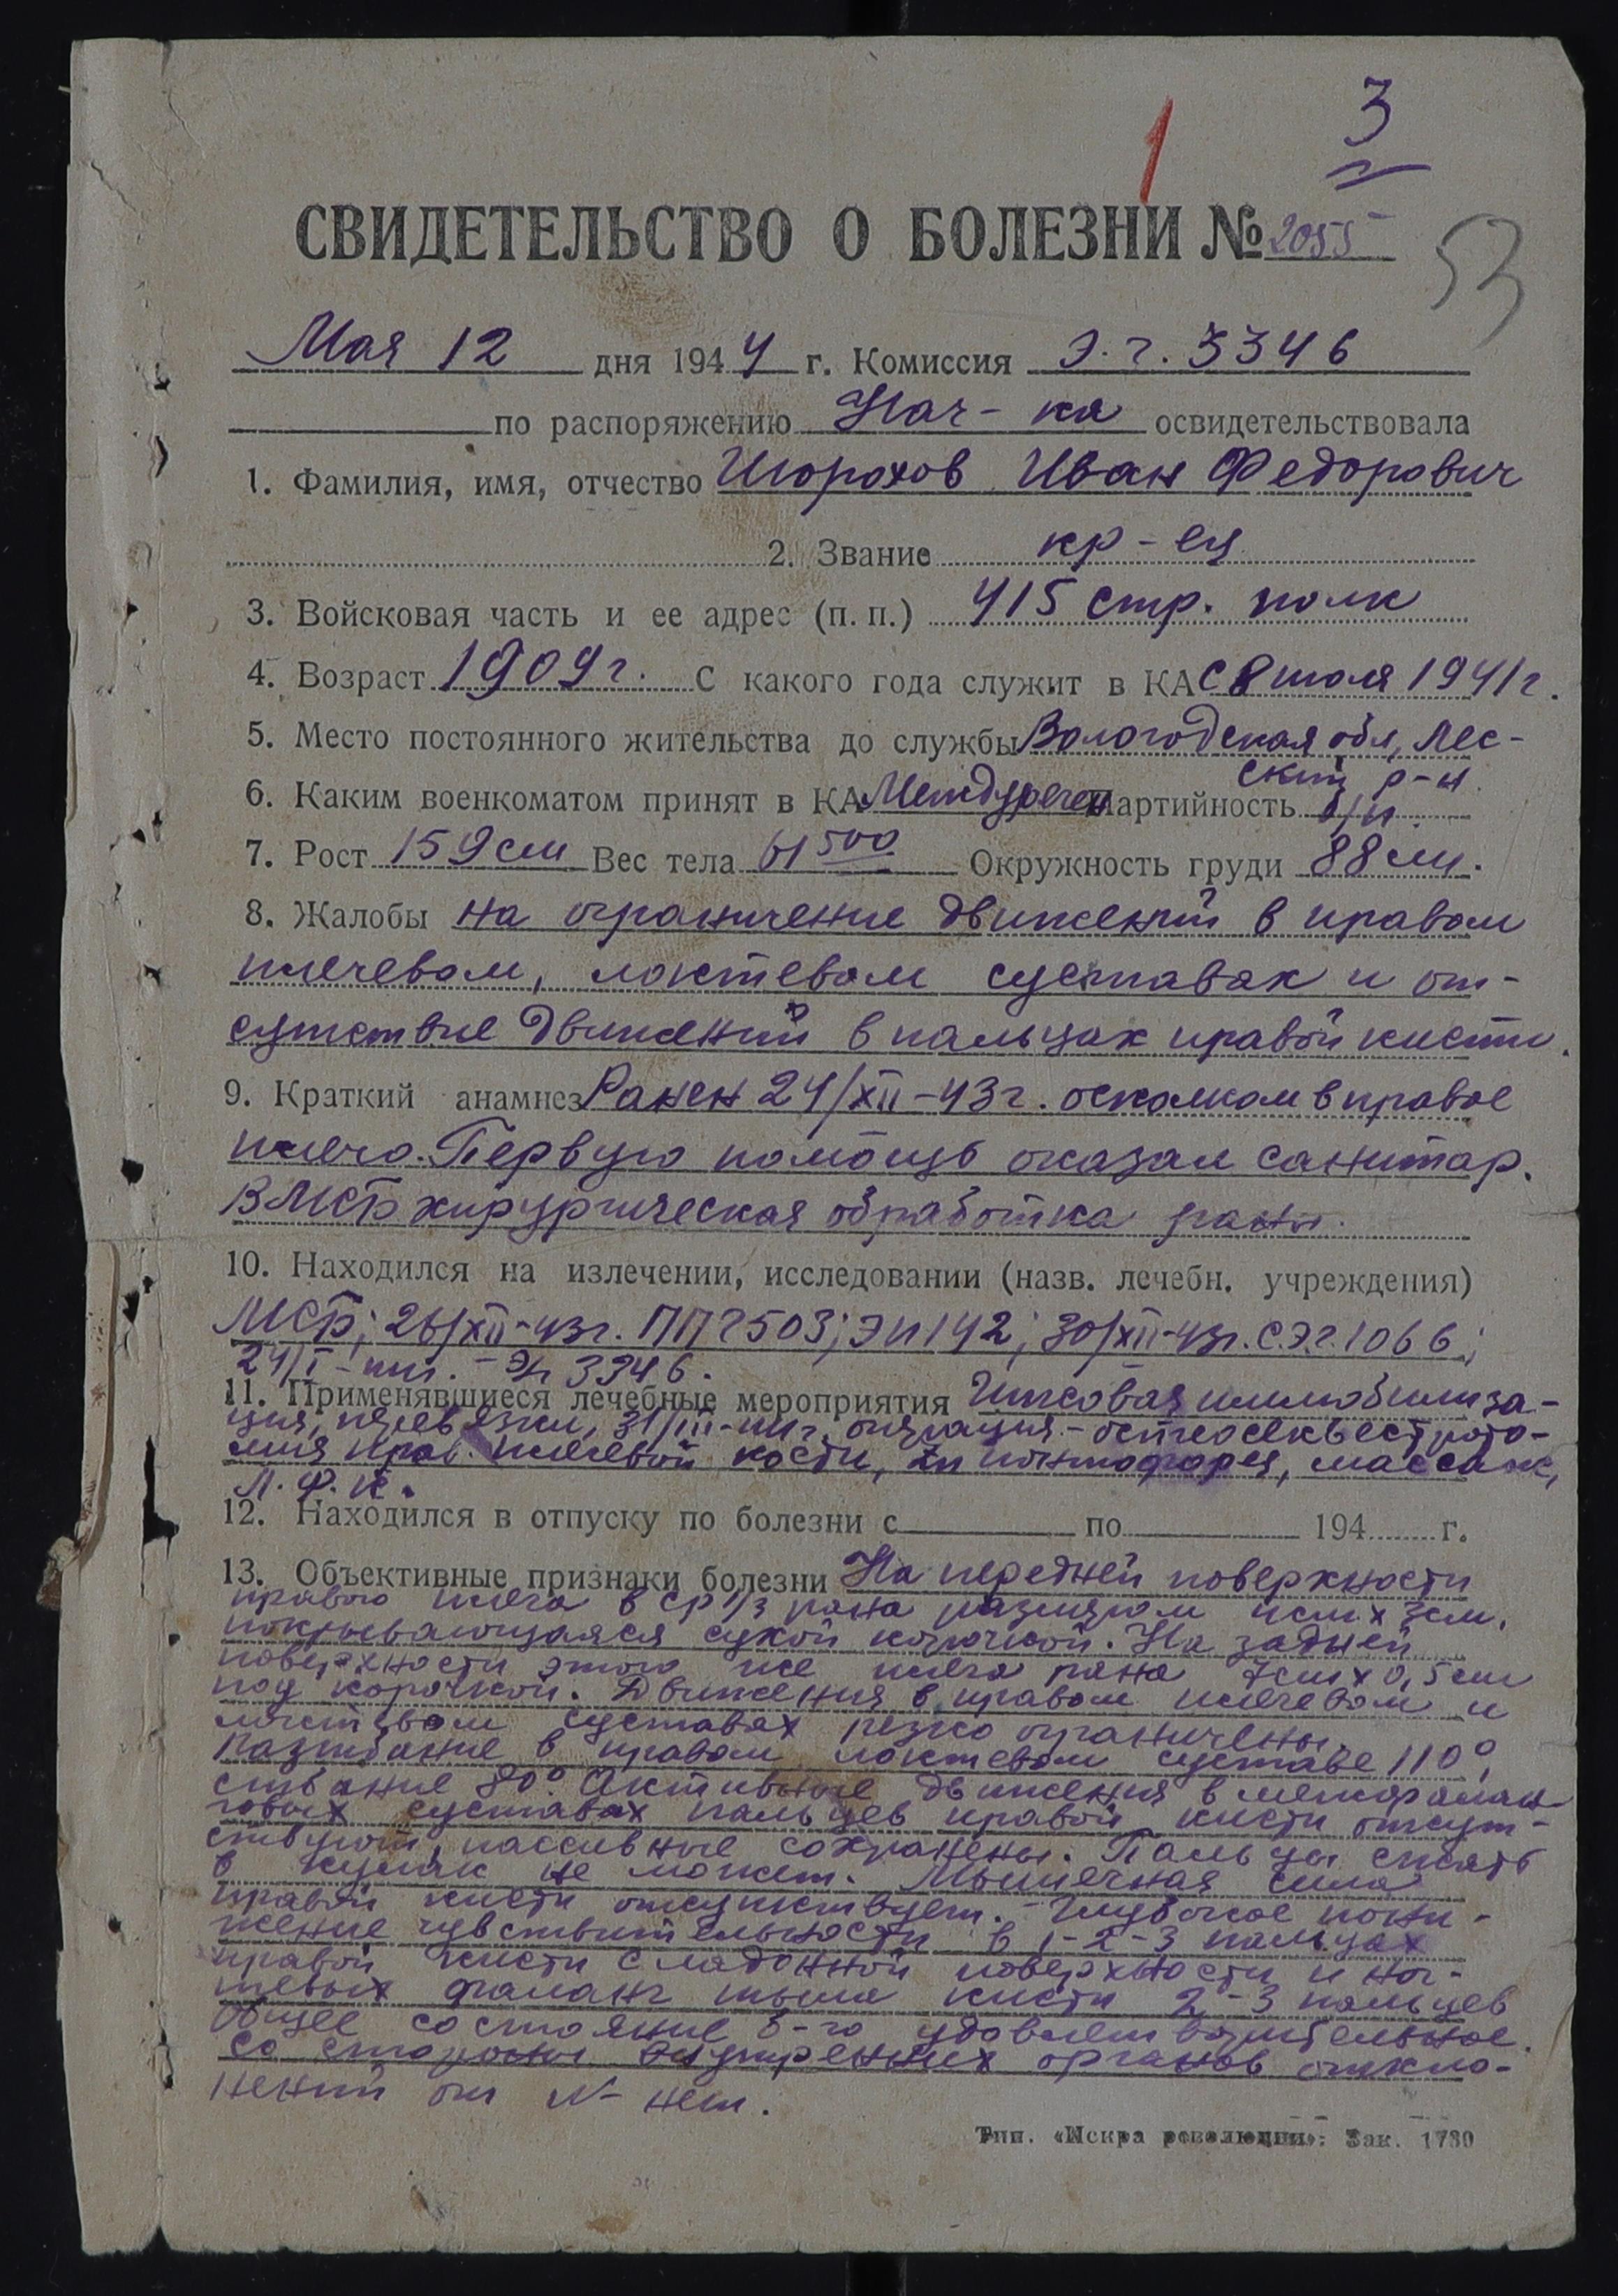 3
1
СВИДЕТЕЛЬСТВО О БОЛЕЗНИ № 2055
53
Мая 12 дня 1944 г. Комиссия э.г. 3346
по распоряжению Нач-ка освидетельствовала
1. Фамилия, имя, отчество Шорохов Иван Федорович
2. Звание кр-ец
3. Войсковая часть и ее адрес (п. п.) 415 стр. полк
4. Возраст 1909 г. С какого года служит в КА с 8 июля 1941 г.
5. Место постоянного жительства до службы Вологодская обл, Лес-
ский р-н
6. Каким военкоматом принят в КА Междуречен Партийность б/п
7. Рост 159 см Вес тела 61 500 Окружность груди 88 см.
8. Жалобы на ограничение движений в правом
плечевом, локтевом суставах и от-
сутствие движений в пальцах правой кисти.
9. Краткий анамнез Ранен 24/XII-43 г. осколком в правое
плечо. Первую помощь оказал санитар.
В МСБ хирургическая обработка раны.
10. Находился на излечении, исследовании (назв. лечебн. учреждения)
МСБ; 26/XII-43г. ППГ 503; ЭП 142; 30/XII-43г. С.Э.г. 1066;
24/I-44г. - Эг 3346.
11. Применявшиеся лечебные мероприятия Гипсовая иммобилиза-
ция, перевязки, 31/III-44 г. операция - остеосеквестрото-
мия прав. плечевой кости, ионтофорез, массаж,
Л.Ф.К.
12. Находился в отпуску по болезни с по 194 г.
13. Объективные признаки болезни На передней поверхности
правого плеча в ср 1/3 рана размером 4см х 3см.
покрывающаяся сухой корочкой. На задней
поверхности этого же плеча рана 7см х 0,5 см
под корочкой. Движения в правом плечевом и
локтевом суставах резко ограничены.
Разгибание в правом локтевом суставе 110°,
сгибание 80°. Активные движения в межфалан-
говых суставах пальцев правой кисти отсут-
ствуют, пассивные сохранены. Пальцы сжать
в кулак не может. Мышечная сила
правой кисти отсутствует. Глубокое пони-
жение чувствительности в 1-2-3 пальцах
правой кисти с ладонной поверхности и ног-
тевых фаланг тыла кисти 2-3 пальцев
Общее состояние б-го удовлетворительное.
Со стороны внутренних органов откло-
нений от N - нет.
Тип. «Искра революции». Зак. 1730